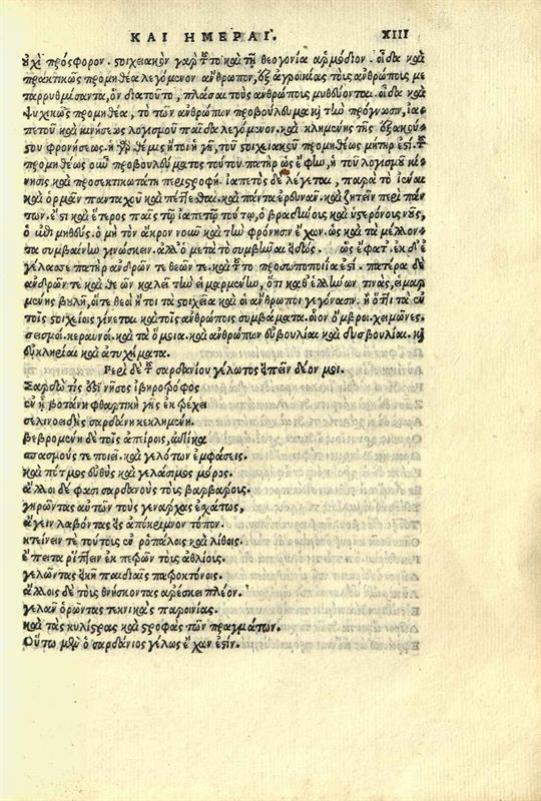 ΚΑΙ ΗΜΕΡΑΙ. XIII
οὐχὶ πρόσφορον. στοιχειακὸν γὰρ τὸ καὶ τῇ θεογονίᾳ ἁρμόδιον. οἶδα καὶ
πρακτικῶς προμηθέα λεγόμενον ἄνθρωπον, ἐξ ἀγροικίας τοὺς ἀνθρώποις με
ταρρυθμίσαντα, ὃν διατοῦτο, πλάσαι τοὺς ἀνθρώποις μυθεύονται. οἶδα καὶ
ψυχικῶς προμηθέα, τὸ τῶν ἀνθρώπων προβούλευμα καὶ τὴν πρόγνωσιν, ἰα-
πετοῦ καὶ κινήσεως λογισμοῦ παῖδα λεγόμενον. καὶ κλημένης τῆς ὀξακού-
στου φρονήσεως. ἢ θέμις ἤτοι ἡ γῆ, τοῦ στοιχειακοῦ προμηθέως μήτηρ ἐστί. τοῦ
προμηθέως οὖν προβουλεύματος τούτου πατὴρ ὡς ἔφην, ἡ τοῦ λογισμοῦ κί-
νησις καὶ προσεκτικωτάτη περιστροφή. ἰαπετὸς δὲ λέγεται, παρὰ τὸ ἰέναι
καὶ ὁρμᾶν πανταχοῦ καὶ πέτεσθαι. καὶ πάντα ἐρευνᾶν. καὶ ζητεῖν περὶ πάν
των. ἔστι καὶ ἕτερος παῖς τῷ ἰαπετῷ τούτῳ, ὁ βραδὺνους καὶ ὑστερόνους νοῦς,
ὁ ἐπιμηθεύς. ὁ μὴ τὸν ἄκρον νοῦν καὶ τὴν φρόνησιν ἔχων. ὡς καὶ τὰ μέλλον-
τα συμβαίνειν γινώσκειν. ἀλλ' ὁ μετὰ τὸ συμβῆναι εἰδώς. ὡς ἔφατ'. ἐκ δ' ἐ
γέλασσε πατὴρ ἀνδρῶν τε θεῶν τε. καὶ τοῦτο προσωποποιΐα ἐστί. πατέρα δὲ
ἀνδρῶν τε καὶ θεῶν καλεῖ τὴν εἱμαρμένην, ὅτι καθ' ἕλληνων τινάς, εἱμαρ
μένης βουλῇ, οἵ τε θεοὶ ἤτοι τὰ στοιχεῖα καὶ οἱ ἄνθρωποι γεγόνασιν. ἢ ὅτι τὰ ἐν
τοῖς στοιχείοις γίνεται καὶ τοῖς ἀνθρώποις συμβάματα. οἷον ὄμβροι. χειμῶνες.
σεισμοί. κεραυνοί. καὶ τὰ ὅμοια. καὶ ἀνθρώπων εὐβουλίαι καὶ δυσβουλίαι. καὶ
εὐκληρίαι καὶ ἀτυχήματα.
Περὶ δὲ τοῦ σαρδανίου γέλωτος εἰπεῖν δέον μοι.
Σαρδὼ τίς ἐστι νῆσος ἰβηροτρόφος
ἐν ᾗ βοτάνη φθαρτικὴ γῆς ἐκτρέχει
σελινοειδὴς σαρδάνη κεκλημένη.
βεβρομένη δὲ τοῖς ἀπείροις, αὐτίκα
σπασμούς τε ποιεῖ. καὶ γελώτων ἐμφάσεις.
καὶ πότμος εὐθὺς καὶ γελάσιμος μόρος.
ἄλλοι δέ φασι σαρδανοὺς τοὺς βαρβάροις.
γηρῶντας αὐτῶν τοὺς γενάρχας ἐσχάτως,
ἄγειν λαβόντας εἰς ἀπόκρημνον τόπον.
κτείνειν τε τούτους ἐν ῥοπάλοις καὶ λίθοις.
ἔπειτα ῥίπτειν ἐκ πετρῶν τοὺς ἀθλίοις.
γελῶντας εἰκῆ παιδιαῖς πατροκτόνοις.
ἄλλοις δὲ τοὺς θνήσκοντας ἀρέσκει πλέον.
γελᾶν ὁρῶντας τεκνικὰς παροινίας.
καὶ τὰς κυλίστρας καὶ στροφὰς τῶν πραγμάτων.
Οὕτω μὲν ὁ σαρδάνιος γέλως ἔχων ἐστίν.